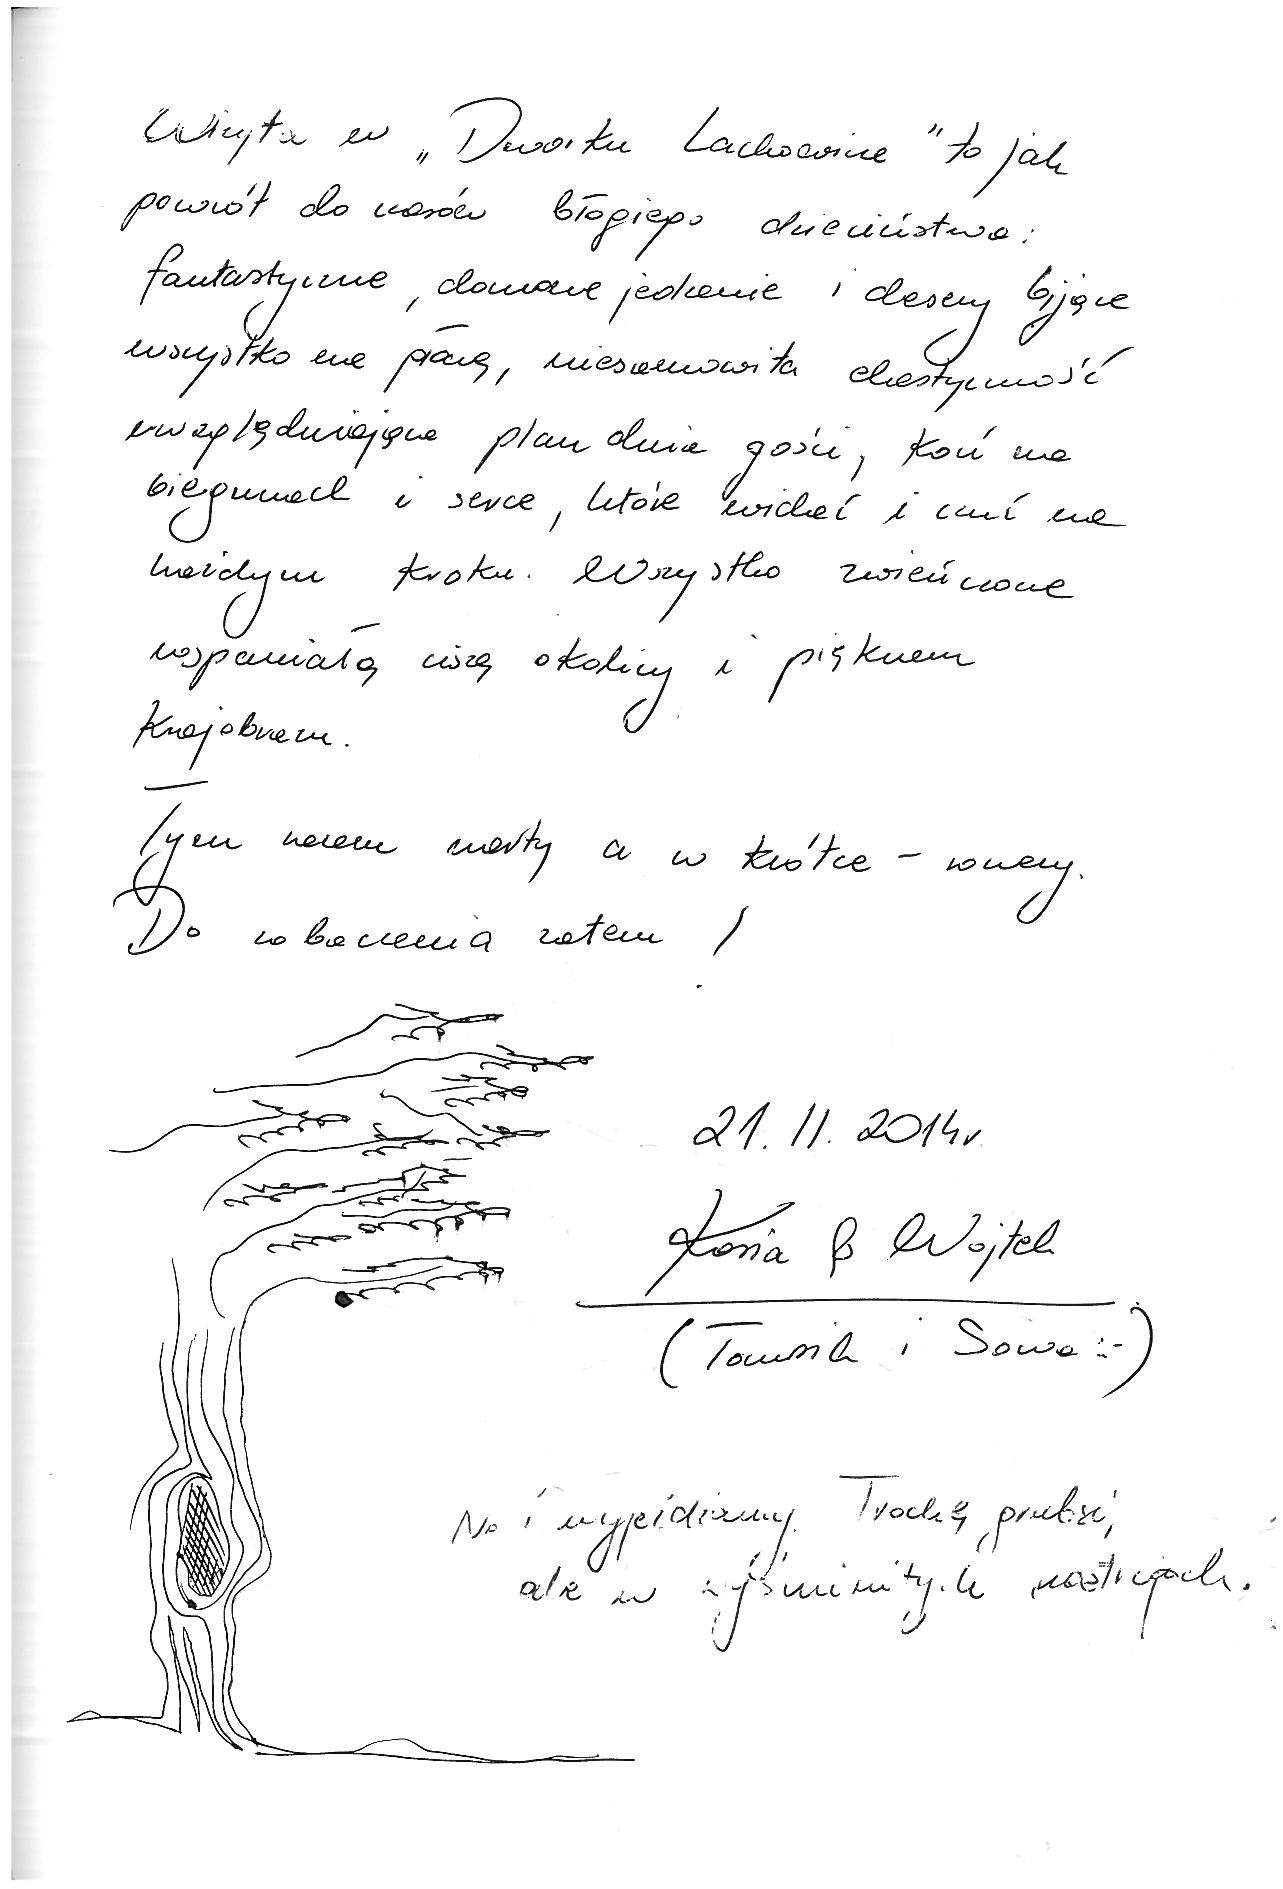 Wizyta w „Dworku Lachowicze" to jak
powrót do czasów błogiego dzieciństwa:
fantastyczne, domowe jedzenie i desery bijące
wszystko na głowę, niesamowita elastyczność
uwzględniająca plan dnia gości, koń na
biegunach i serce, które widać i czuć na
każdym kroku. Wszystko zwieńczone
wspaniałą ciszą okolicy i pięknem
krajobrazu.
Tym razem narty a w krótce – rowery.
Do zobaczenia zatem!
21. 11. 2014r.
Kasia & Wojtek
( i Sowa :-)
No i wyjeżdżamy. Trochę grubsi,
ale w wyśmienitych nastrojach.